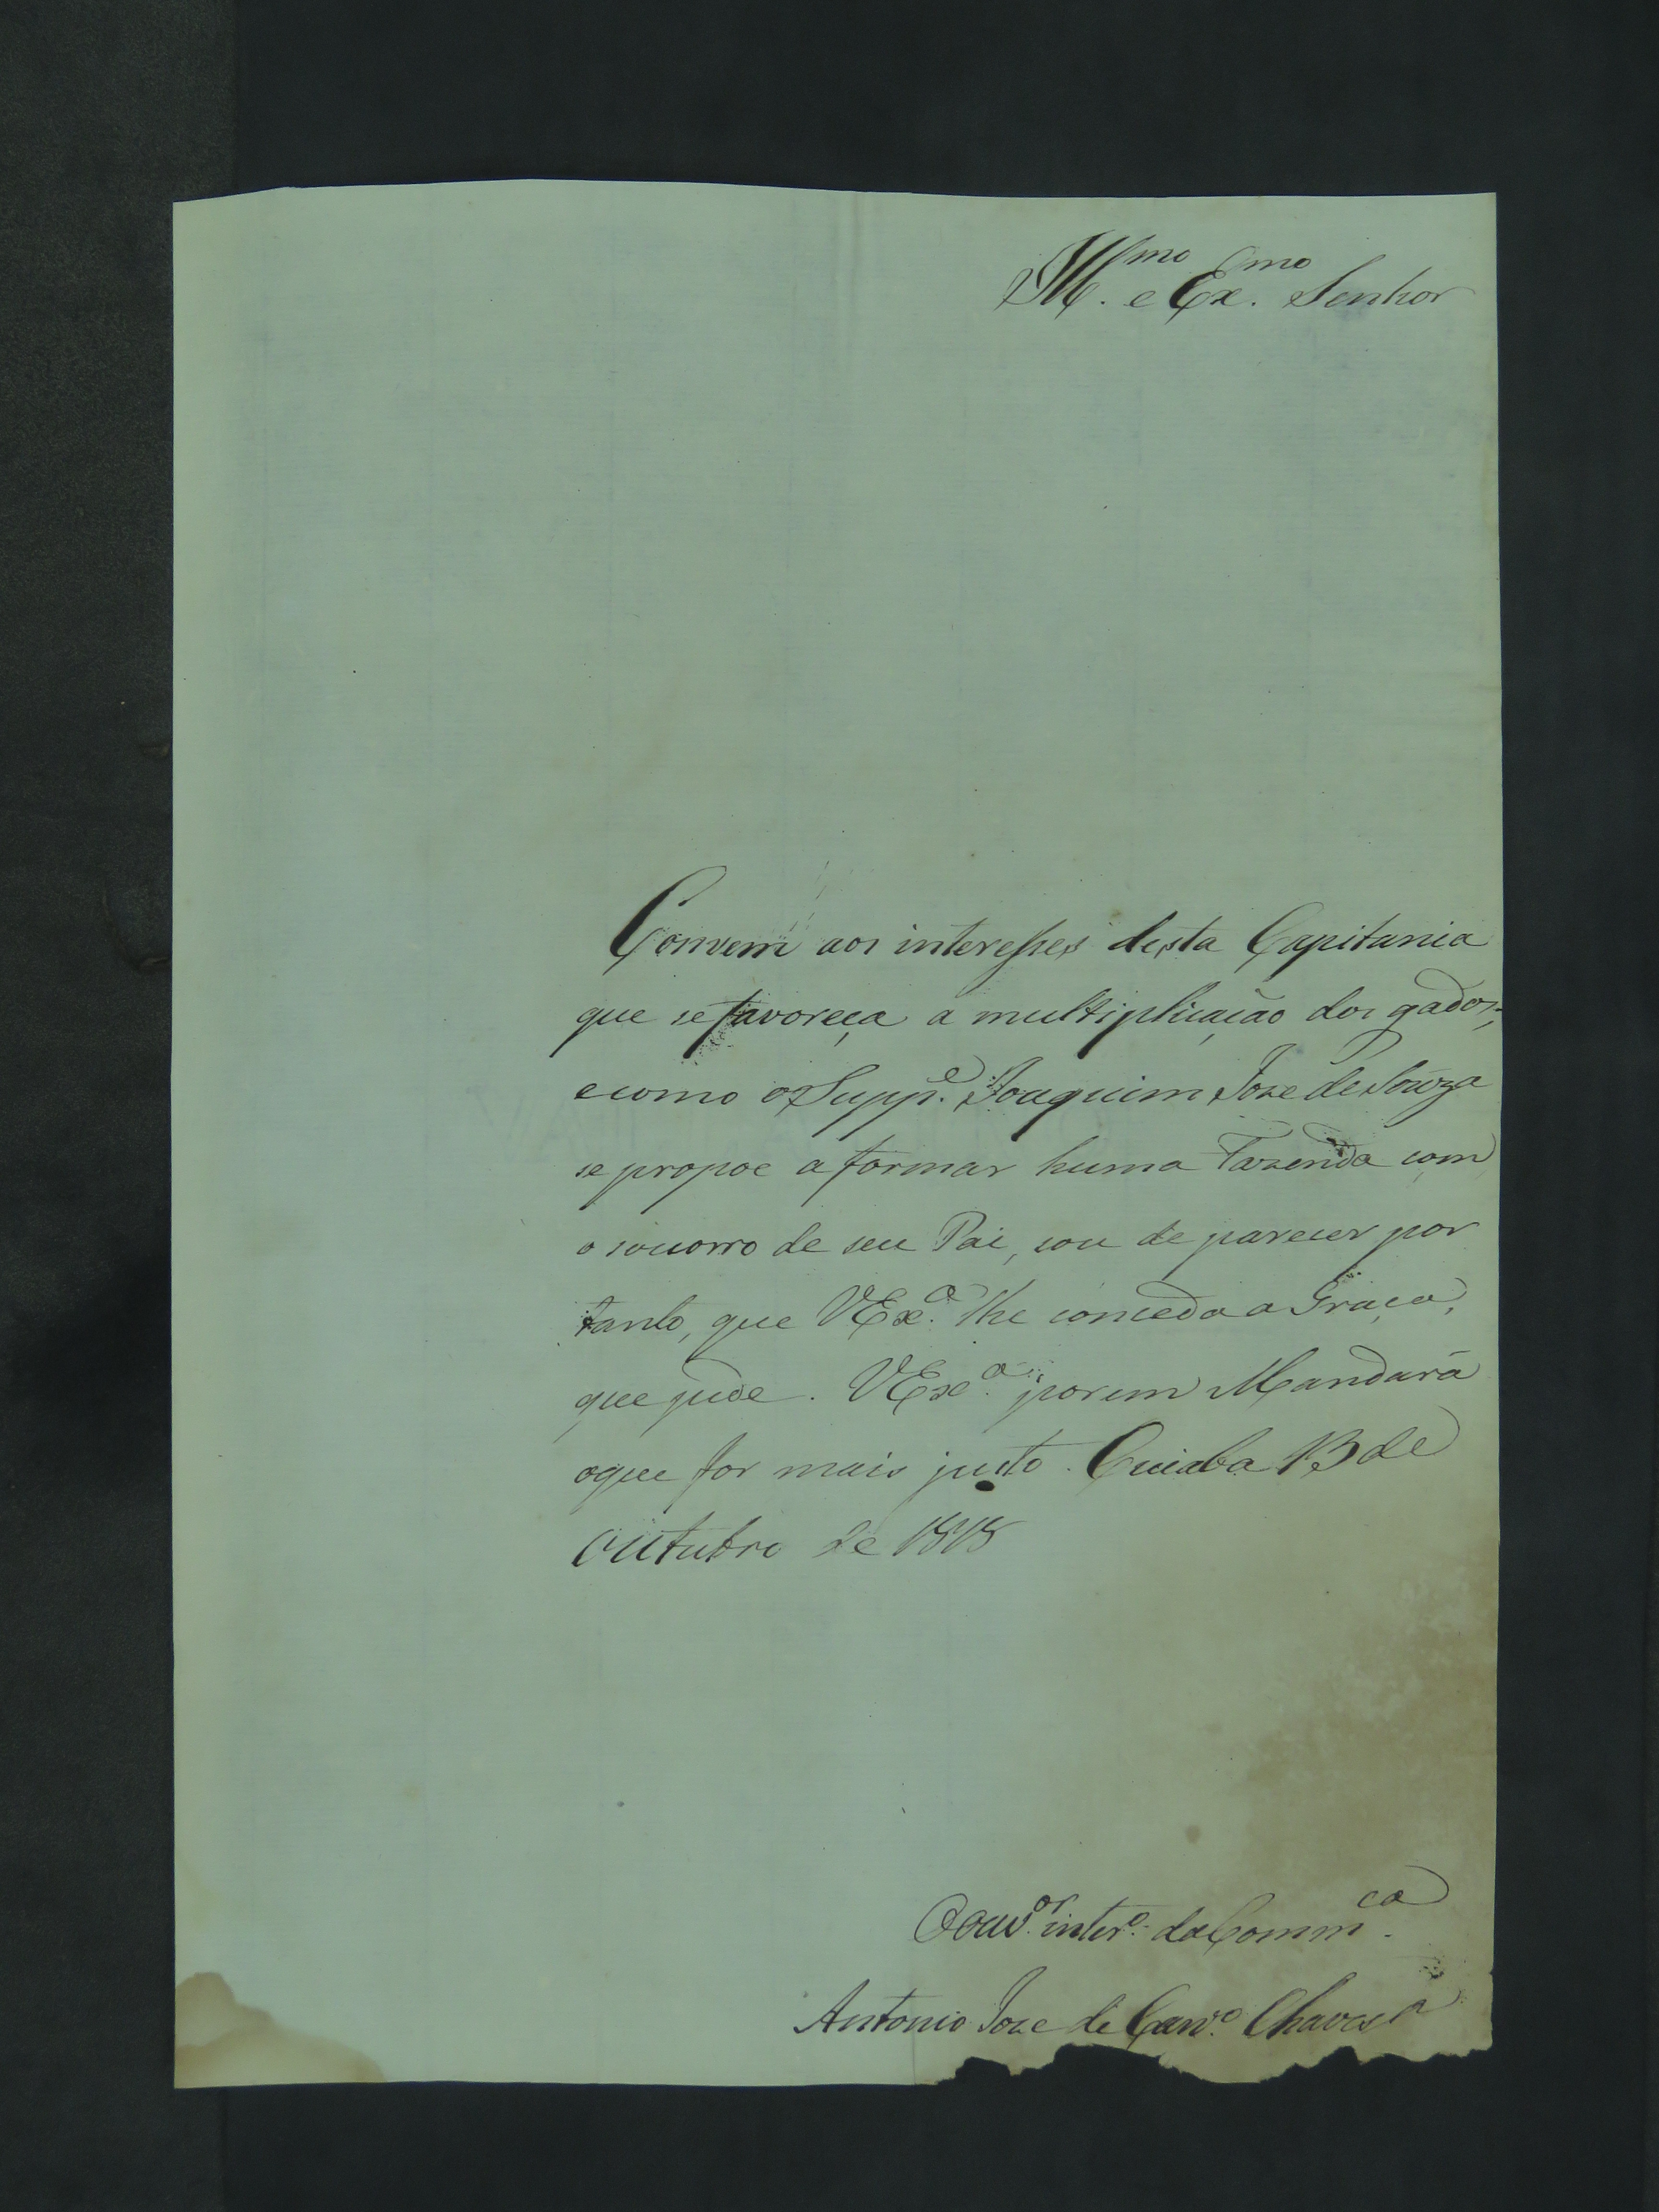 Ill.mo e Ex.mo Senhor
Convem aos interesses desta Capitania
que se favoreça a multiplicação dos gados;
e como o Supp.e Joaquim Joze de Souza
se propoe a formar huma Fazenda com
o socorro de seu Pai, sou de parecer por
tanto, que VEx.a lhe conceda a Graça,
que pede. VEx.a porem Mandará
oque for mais justo. Cuiaba 13 de
Outubro de 1818
O Ouv.or inter.o da Comm.ca
Antonio Joze de Carv.o Chaves